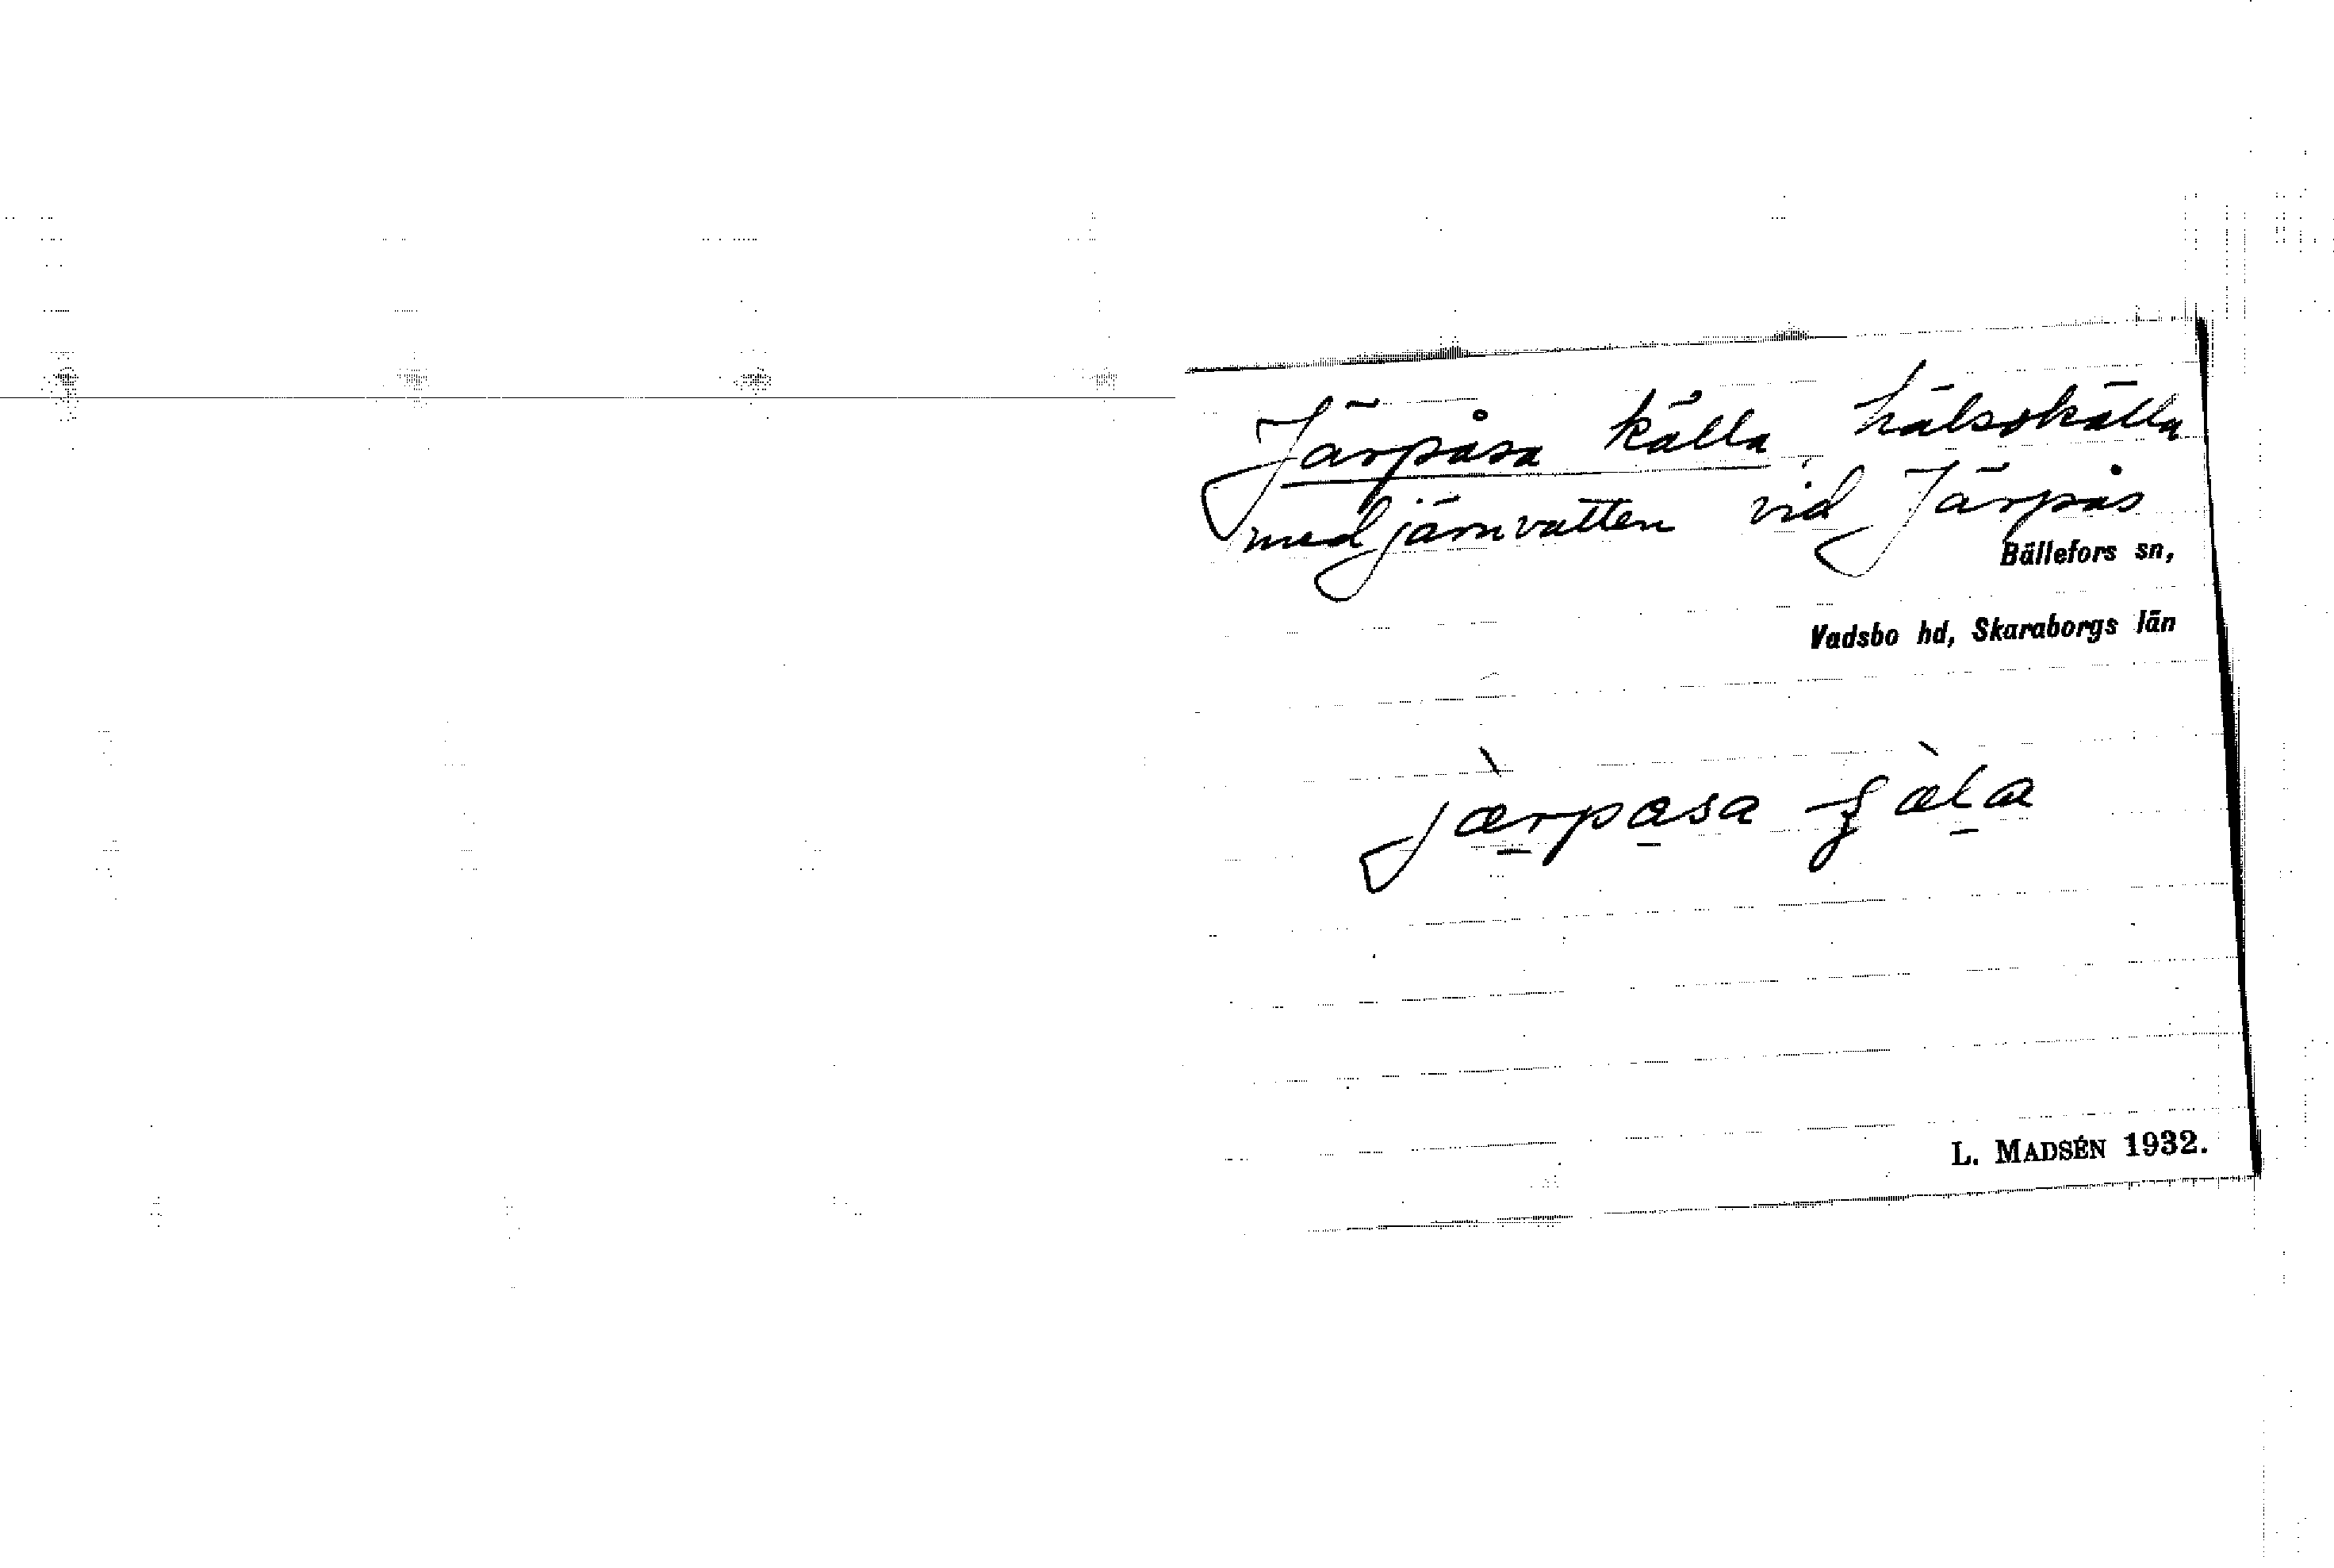 Järpåsa källa, hälsokälla
med järnvatten vid Järpås
Bällefors sn,
Vadsbo hd, Skaraborgs län
L. MADSÉN 1932.